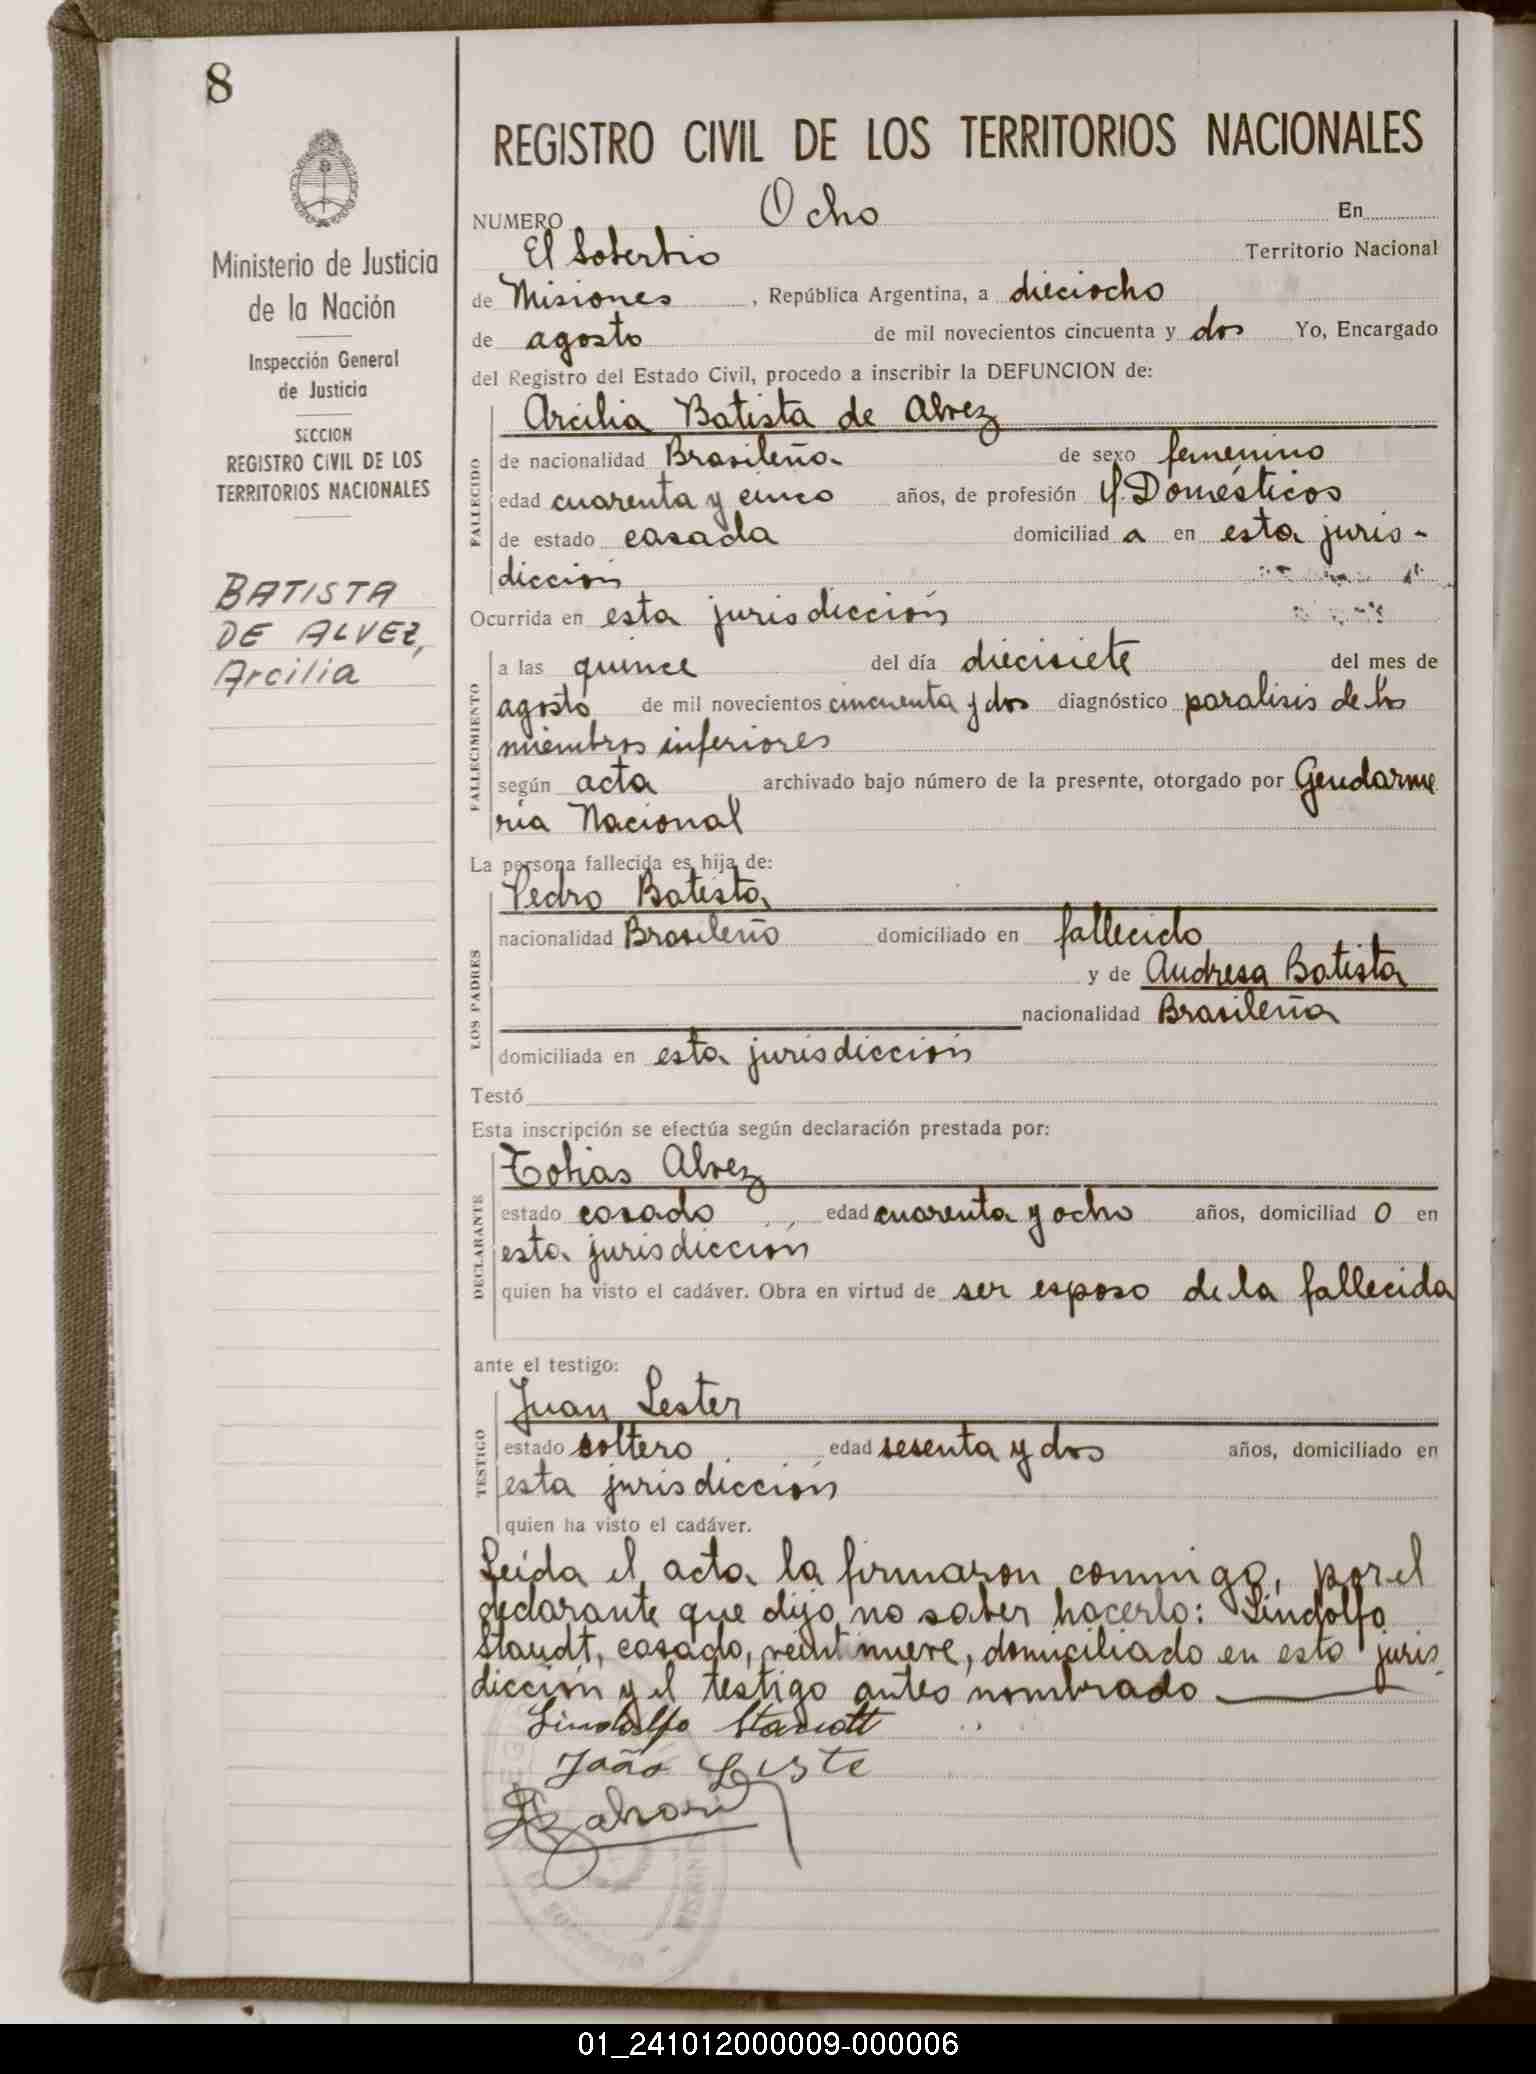 8
REGISTRO CIVIL DE LOS TERRITORIOS NACIONALES
Ministerio de Justicia
de la Nación
Inspección General
de Justicia
SECCION
REGISTRO CIVIL DE LOS
TERRITORIOS NACIONALES
BATISTA
DE ALVEZ,
Arcilia
NUMERO Ocho En
El Soberbio Territorio Nacional
de Misiones, República Argentina, a dieciocho
de agosto de mil novecientos cincuenta y dos Yo, Encargado
del Registro del Estado Civil, procedo a inscribir la DEFUNCION de:
Arcilia Batista de Alvez
FALLECIDO
de nacionalidad Brasileña de sexo femenino
edad cuarenta y cinco años, de profesión Q. Domésticos
de estado casada domiciliad a en esta juris-
dicción
Ocurrida en esta jurisdicción
FALLECIMIENTO
a las quince del día diecisiete del mes de
agosto de mil novecientos cincuenta y dos diagnóstico paralisis de los
miembros inferiores
según acta archivado bajo número de la presente, otorgado por Gendarme
ria Nacional
La persona fallecida es hija de:
LOS PADRES
Pedro Batista
nacionalidad Brasileño domiciliado en fallecido
y de Andresa Batista
nacionalidad Brasileña
domiciliada en esta jurisdicción
Testó
Esta inscripción se efectúa según declaración prestada por:
DECLARANTE
Tobias Alvez
estado casado edad cuarenta y ocho años, domiciliad o en
esta jurisdicción
quien ha visto el cadáver. Obra en virtud de ser esposo de la fallecida
ante el testigo:
TESTIGO
Juan Lester
estado soltero edad sesenta y dos años, domiciliado en
esta jurisdicción
quien ha visto el cadáver.
Leída el acta la firmaron conmigo, por el
declarante que dijo no saber hacerlo: Lindolfo
Staudt, casado, veintinueve, domiciliado en esta juris
dicción y el testigo antes nombrado
Lindolfo Staudt
João Leste
01_241012000009-000006